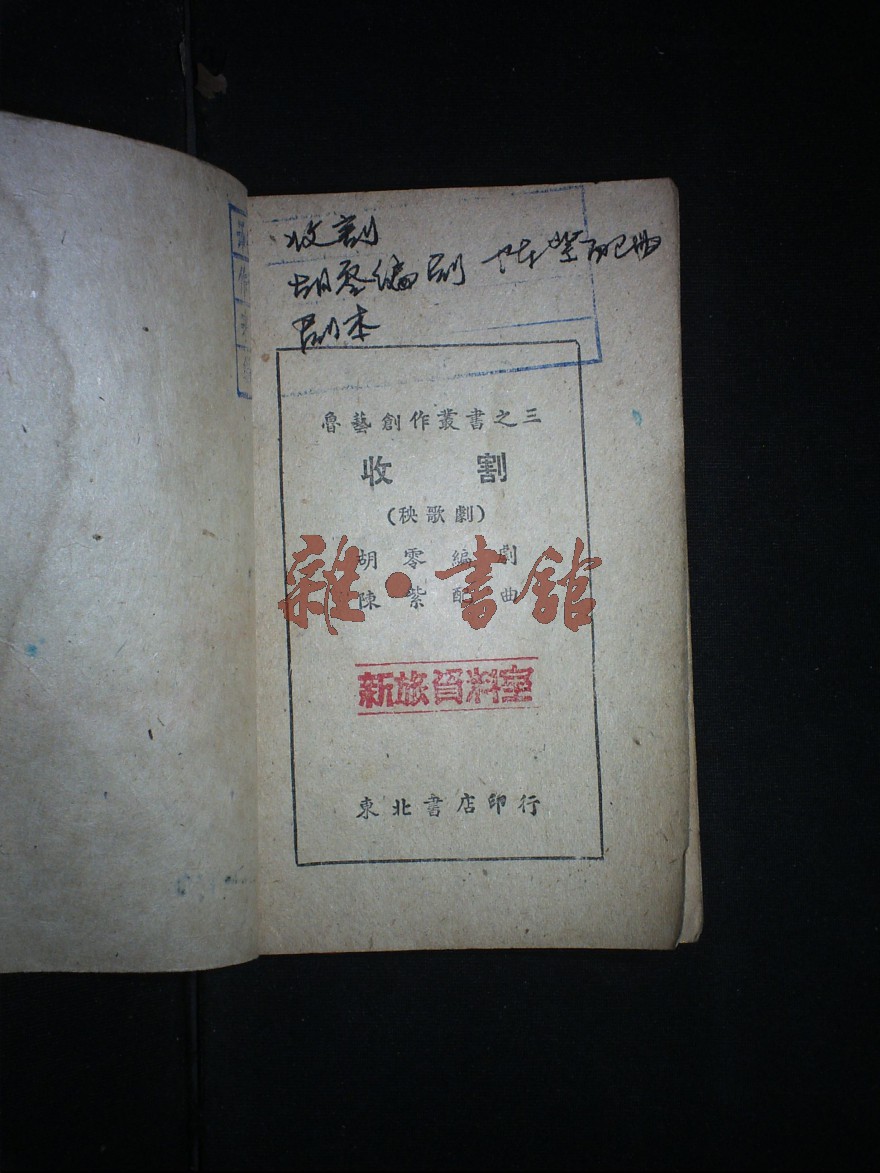 收割
胡零编剧 陈紫配曲
剧本
魯藝創作叢書之三
收割
(秧歌劇)
胡零編劇
陳紫配曲
雜·書館
新旅資料室
東北書店印行